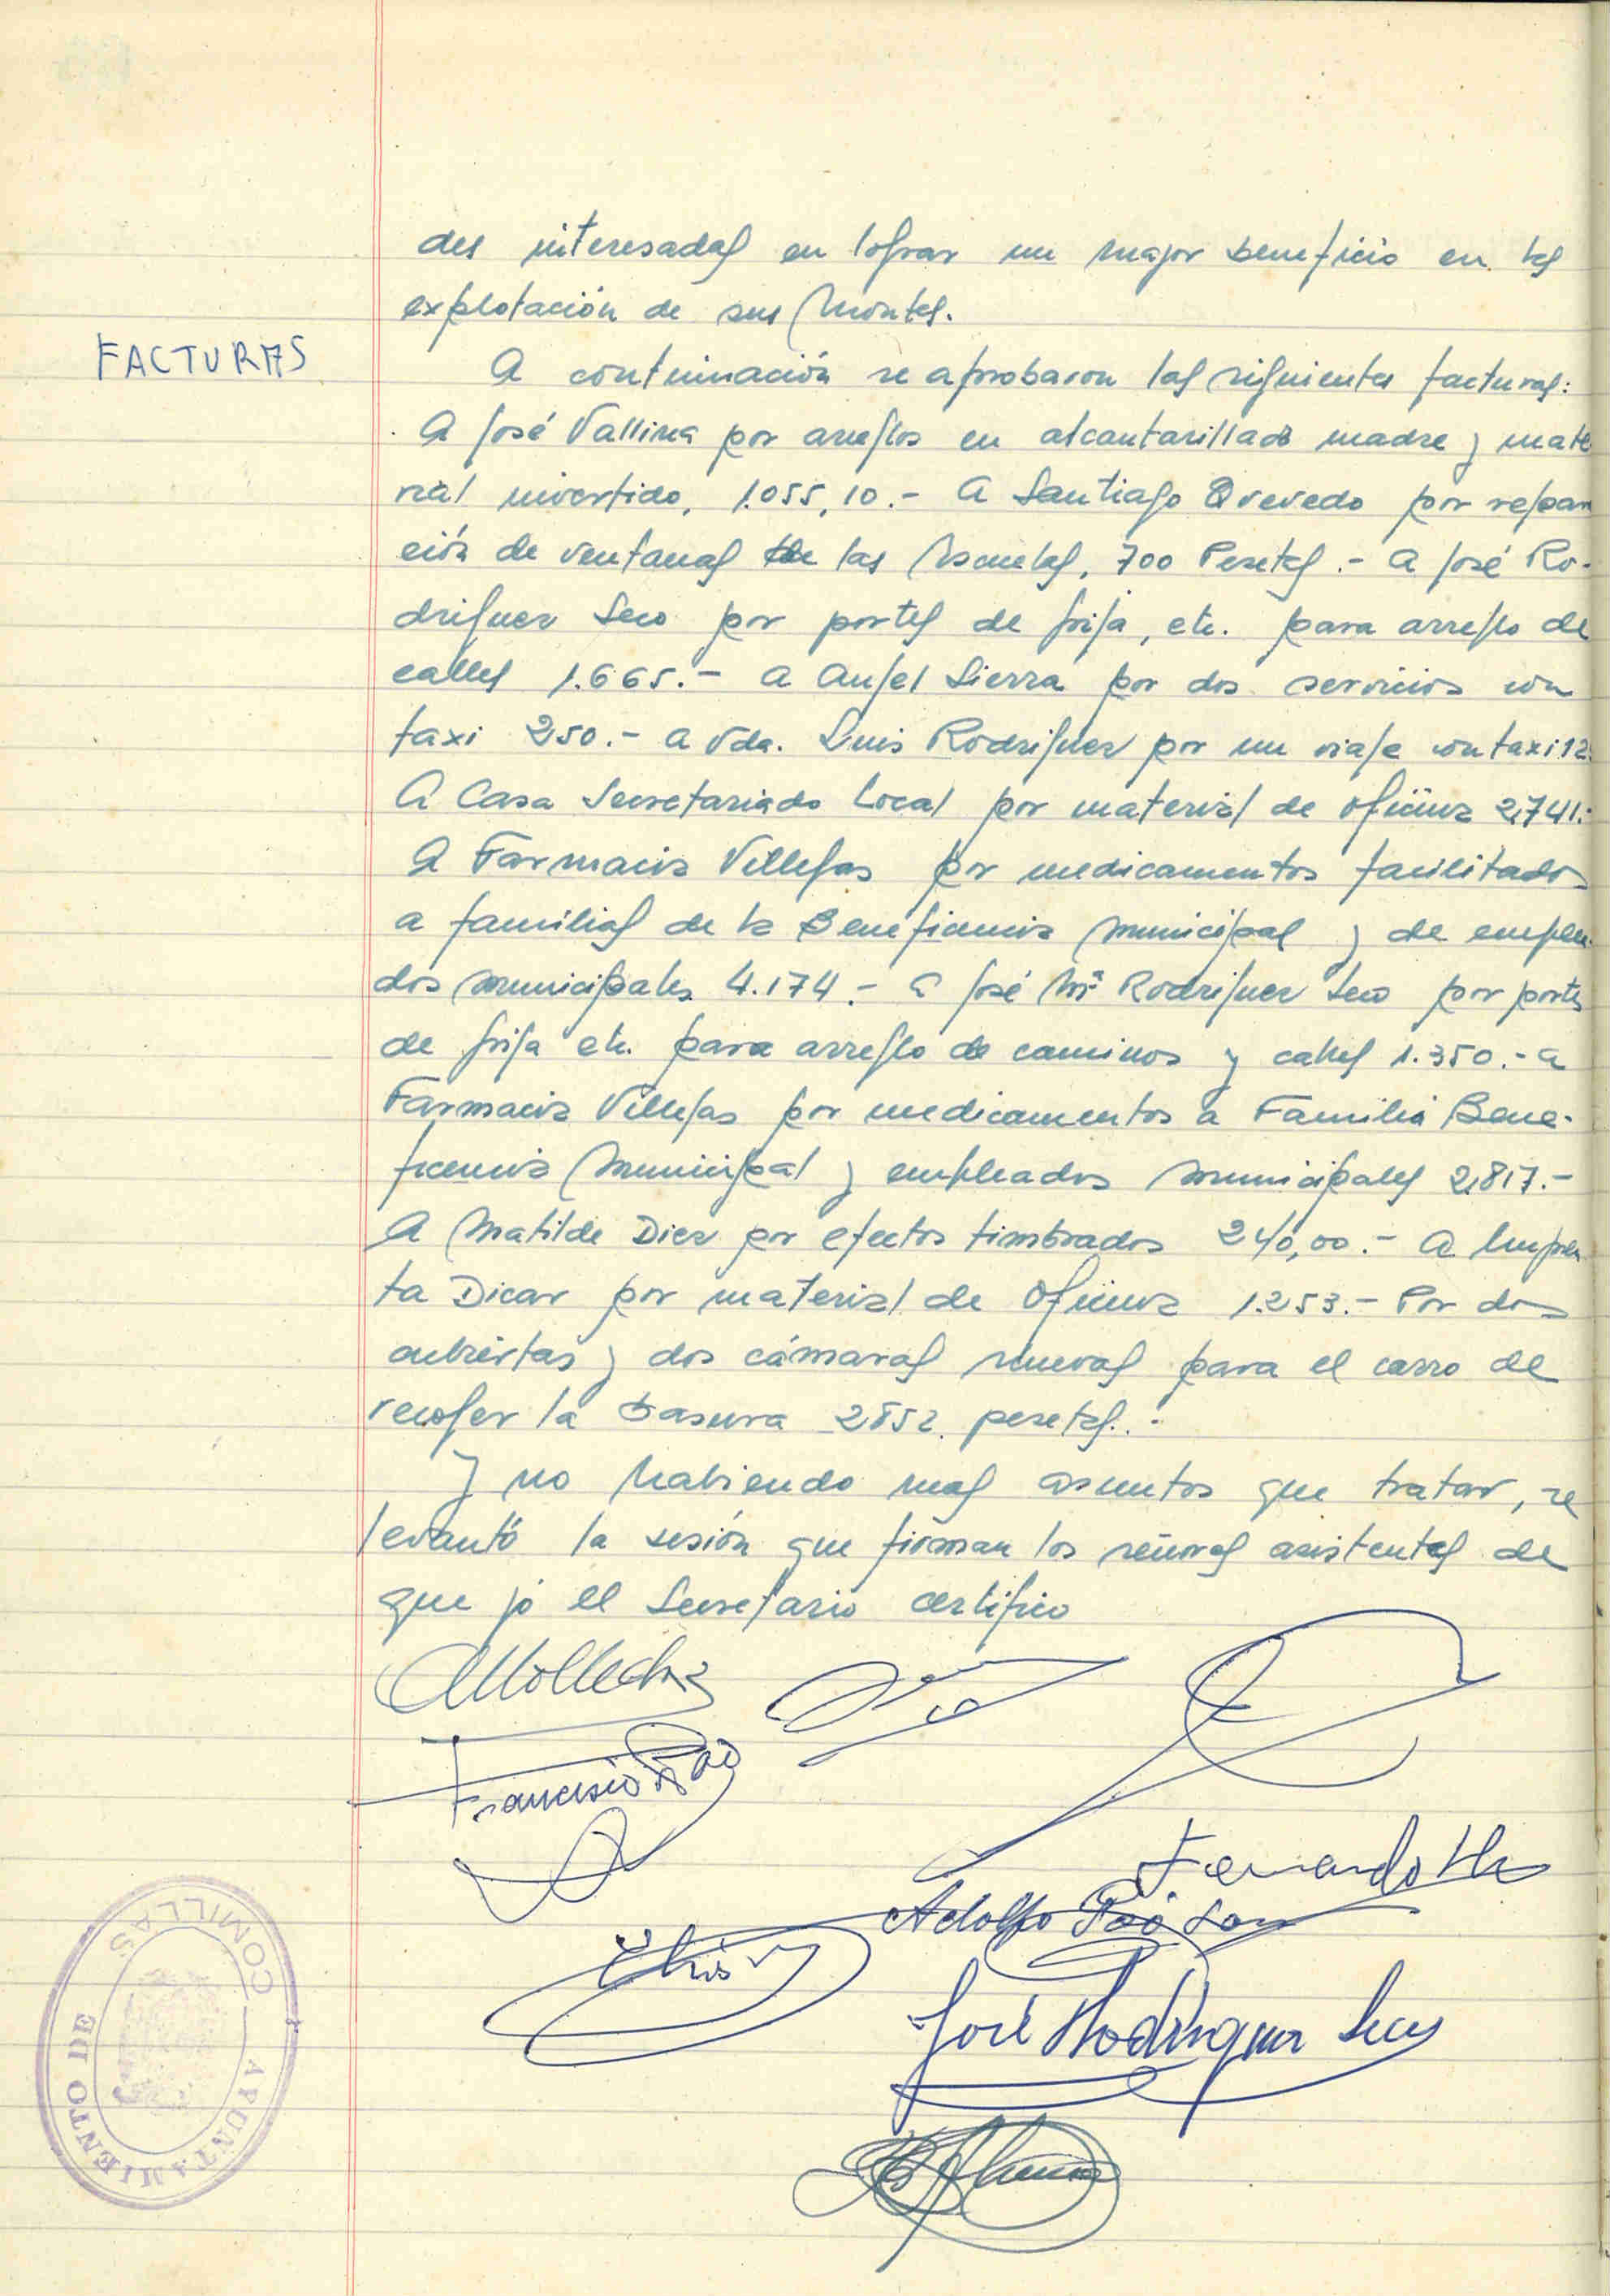 des interesadas en lograr un mayor beneficio en la
explotación de sus Montes.
FACTURAS
A continuación se aprobaron las siguientes facturas:
A José Vallina por arreglos en alcantarillado madre y mate
rial invertido, 1.055,10.- A Santiago Quevedo por repara
ción de ventanas de las Escuelas, 700 Pesetas.- A José Ro-
driguez Seco por portes de grija, etc. para arreglo de
calles 1.665.- A Angel Sierra por dos servicios con
taxi 250.- a Vda. Luis Rodriguez por un viaje con taxi 12
A Casa Secretariado Local por material de oficina 2,741.-
A Farmacia Villegas por medicamentos facilitados
a familias de la Beneficencia Municipal y de emplea
dos municipales 4.174.- a José Mª Rodriguez Seco por portes
de grija etc. para arreglo de caminos y calles 1.350.- a
Farmacia Villegas por medicamentos a Familia Bene-
ficencia Municipal y empleados municipales 2,817.-
A Matilde Diez por efectos timbrados 240,00.- A Impren
ta Dicar por material de Oficina 1.253.- Por dos
cubiertas y dos cámaras nuevas para el carro de
recoger la basura 2852 pesetas.-
Y no habiendo mas asuntos que tratar, se
levantó la sesión que firman los señores asistentes de
que yo el Secretario certifico
Francisco
Fernando
Adolfo
José Rodriguez Seco
AYUNTAMIENTO DE COMILLAS